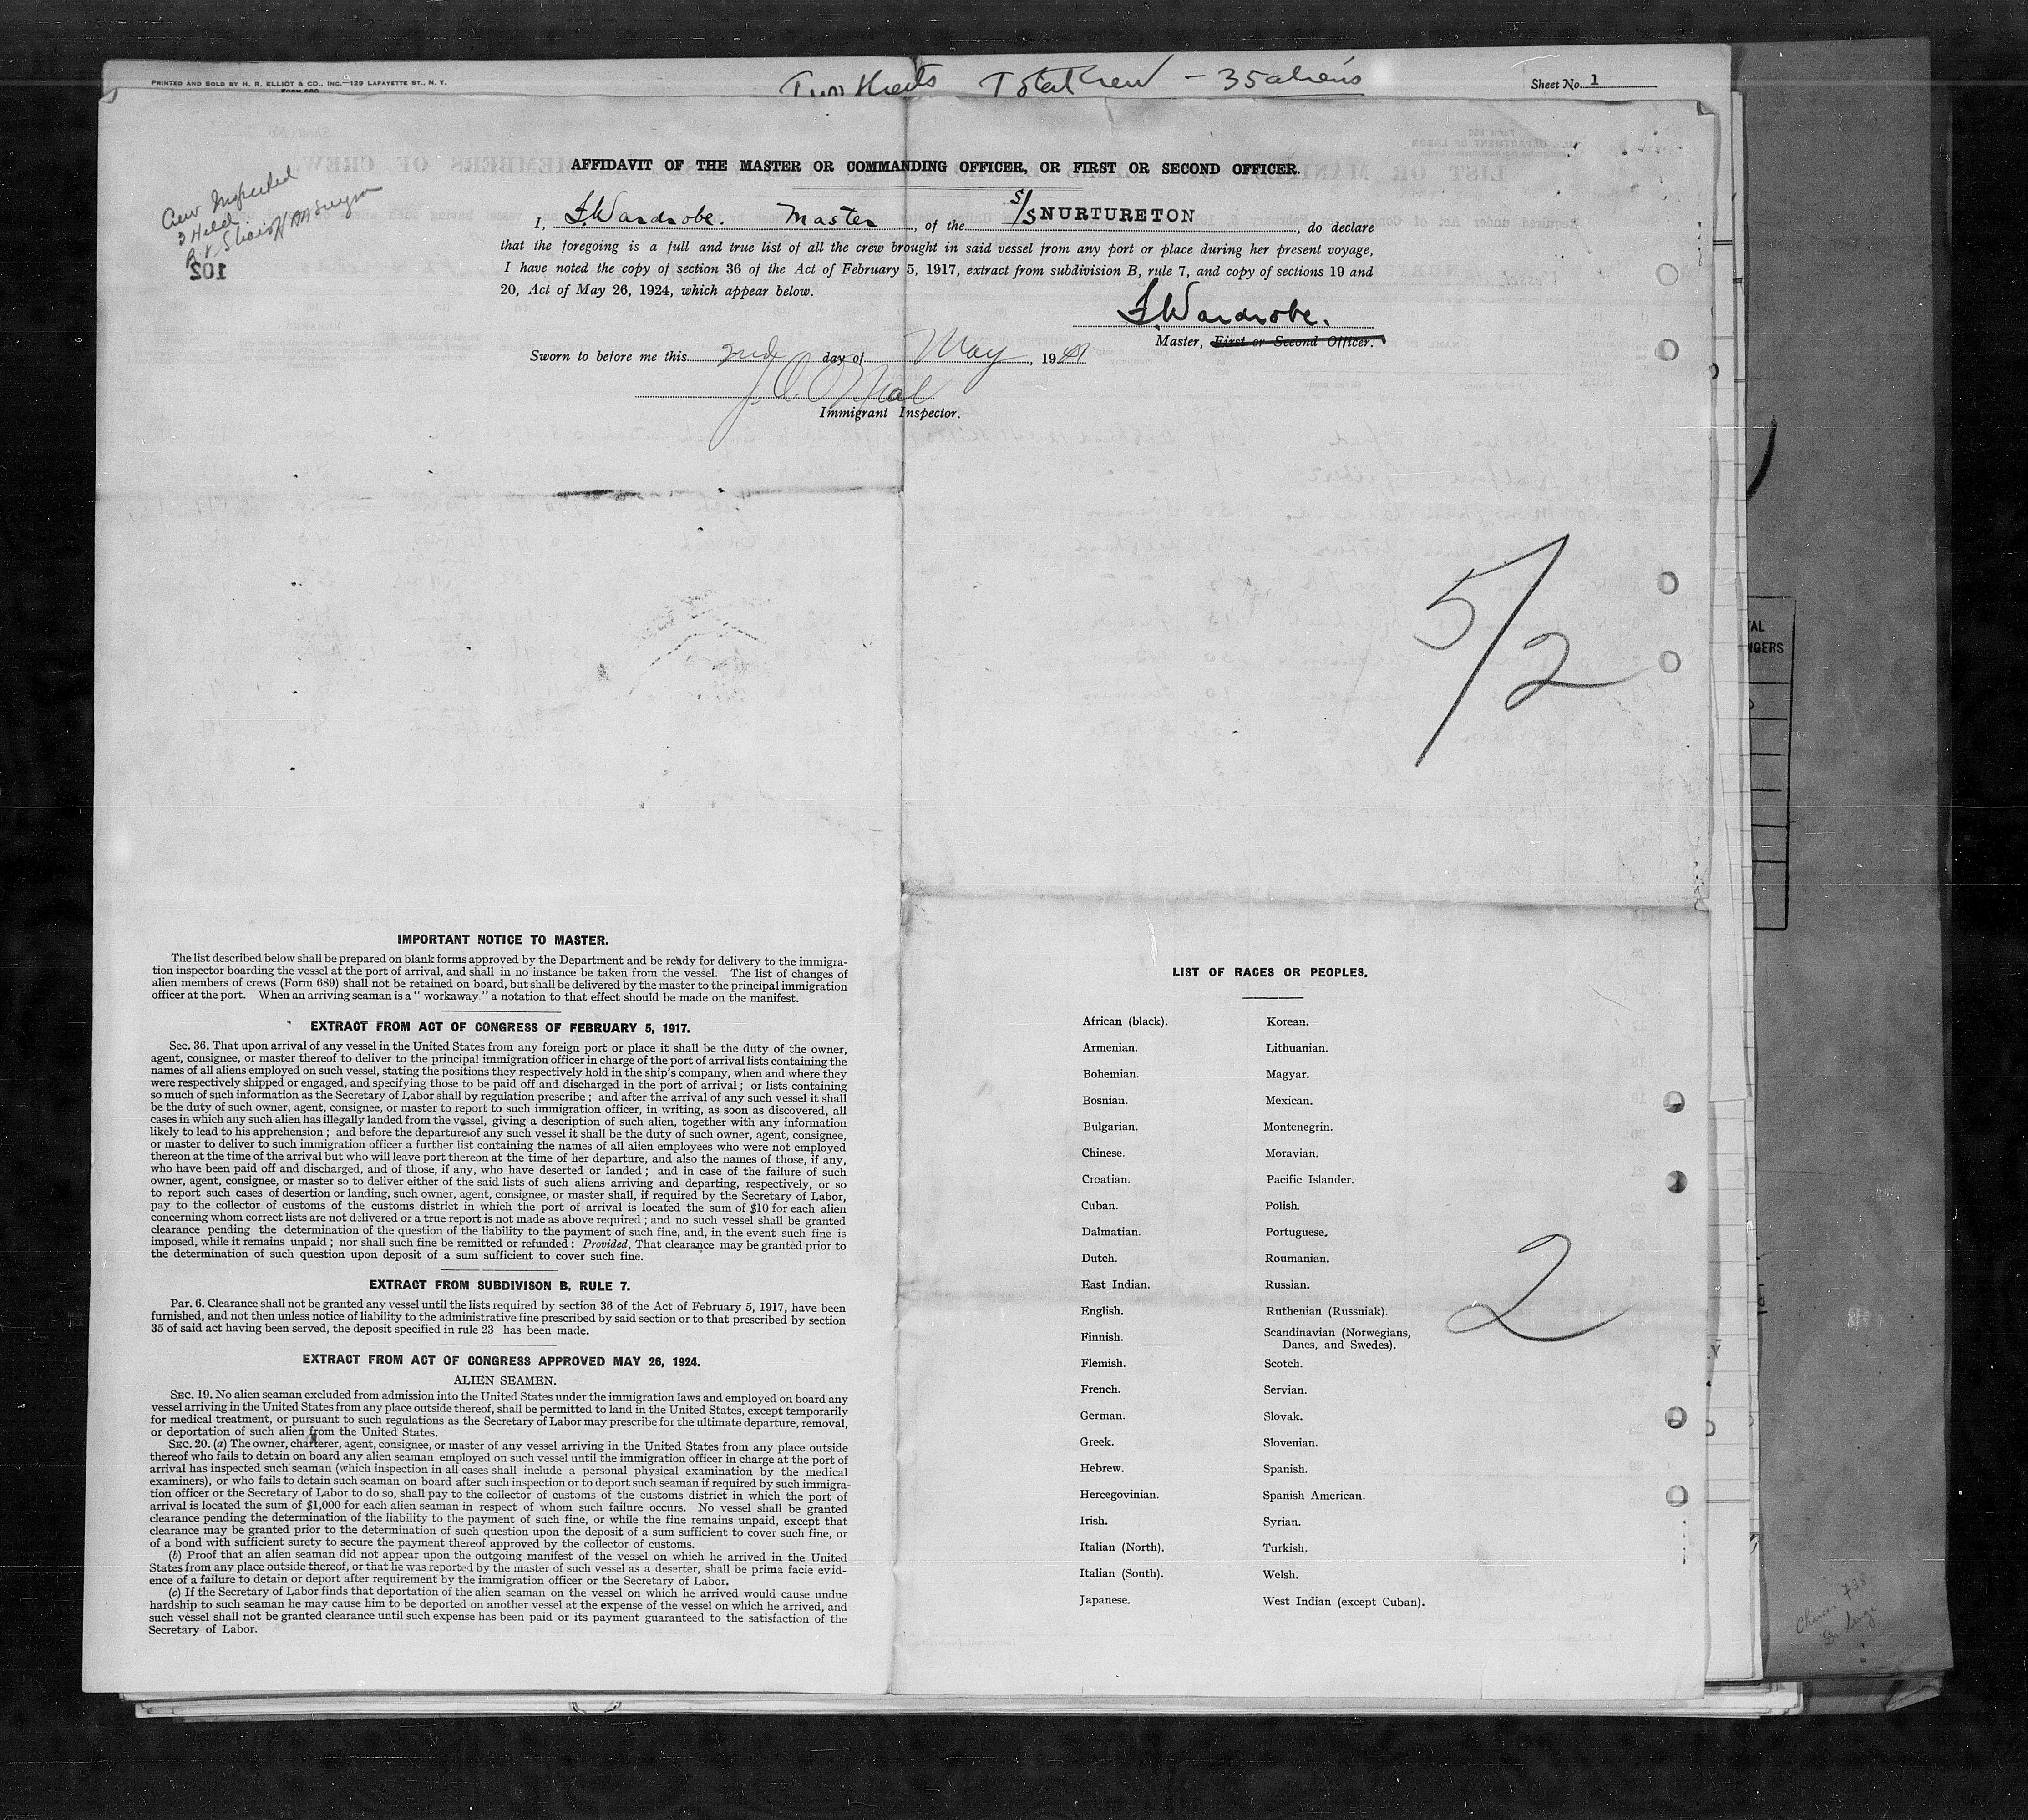 PRINTED AND SOLD BY H. R. ELLIOT & CO., INC.—129 LAFAYETTE ST., N. Y.
Two Sheets Total Crew - 35 aliens
Sheet No. 1
AFFIDAVIT OF THE MASTER OR COMMANDING OFFICER, OR FIRST OR SECOND OFFICER.
Crew Inspected
3 Held
102
I, F. Wardrobe. Master, of the S/S NURTURETON, do declare
that the foregoing is a full and true list of all the crew brought in said vessel from any port or place during her present voyage,
I have noted the copy of section 36 of the Act of February 5, 1917, extract from subdivision B, rule 7, and copy of sections 19 and
20, Act of May 26, 1924, which appear below.
F. Wardrobe.
Master, First or Second Officer.
Sworn to before me this 2nd day of May, 1941
Immigrant Inspector.
5/2
IMPORTANT NOTICE TO MASTER.
The list described below shall be prepared on blank forms approved by the Department and be ready for delivery to the immigra-
tion inspector boarding the vessel at the port of arrival, and shall in no instance be taken from the vessel. The list of changes of
alien members of crews (Form 689) shall not be retained on board, but shall be delivered by the master to the principal immigration
officer at the port. When an arriving seaman is a " workaway " a notation to that effect should be made on the manifest.
EXTRACT FROM ACT OF CONGRESS OF FEBRUARY 5, 1917.
SEC. 36. That upon arrival of any vessel in the United States from any foreign port or place it shall be the duty of the owner,
agent, consignee, or master thereof to deliver to the principal immigration officer in charge of the port of arrival lists containing the
names of all aliens employed on such vessel, stating the positions they respectively hold in the ship's company, when and where they
were respectively shipped or engaged, and specifying those to be paid off and discharged in the port of arrival; or lists containing
so much of such information as the Secretary of Labor shall by regulation prescribe; and after the arrival of any such vessel it shall
be the duty of such owner, agent, consignee, or master to report to such immigration officer, in writing, as soon as discovered, all
cases in which any such alien has illegally landed from the vessel, giving a description of such alien, together with any information
likely to lead to his apprehension; and before the departure of any such vessel it shall be the duty of such owner, agent, consignee,
or master to deliver to such immigration officer a further list containing the names of all alien employees who were not employed
thereon at the time of the arrival but who will leave port thereon at the time of her departure, and also the names of those, if any,
who have been paid off and discharged, and of those, if any, who have deserted or landed; and in case of the failure of such
owner, agent, consignee, or master so to deliver either of the said lists of such aliens arriving and departing, respectively, or so
to report such cases of desertion or landing, such owner, agent, consignee, or master shall, if required by the Secretary of Labor,
pay to the collector of customs of the customs district in which the port of arrival is located the sum of $10 for each alien
concerning whom correct lists are not delivered or a true report is not made as above required; and no such vessel shall be granted
clearance pending the determination of the question of the liability to the payment of such fine, and, in the event such fine is
imposed, while it remains unpaid; nor shall such fine be remitted or refunded: Provided, That clearance may be granted prior to
the determination of such question upon deposit of a sum sufficient to cover such fine.
EXTRACT FROM SUBDIVISON B, RULE 7.
Par. 6. Clearance shall not be granted any vessel until the lists required by section 36 of the Act of February 5, 1917, have been
furnished, and not then unless notice of liability to the administrative fine prescribed by said section or to that prescribed by section
35 of said act having been served, the deposit specified in rule 23 has been made.
EXTRACT FROM ACT OF CONGRESS APPROVED MAY 26, 1924.
ALIEN SEAMEN.
SEC. 19. No alien seaman excluded from admission into the United States under the immigration laws and employed on board any
vessel arriving in the United States from any place outside thereof, shall be permitted to land in the United States, except temporarily
for medical treatment, or pursuant to such regulations as the Secretary of Labor may prescribe for the ultimate departure, removal,
or deportation of such alien from the United States.
SEC. 20. (a) The owner, charterer, agent, consignee, or master of any vessel arriving in the United States from any place outside
thereof who fails to detain on board any alien seaman employed on such vessel until the immigration officer in charge at the port of
arrival has inspected such seaman (which inspection in all cases shall include a personal physical examination by the medical
examiners), or who fails to detain such seaman on board after such inspection or to deport such seaman if required by such immigra-
tion officer or the Secretary of Labor to do so, shall pay to the collector of customs of the customs district in which the port of
arrival is located the sum of $1,000 for each alien seaman in respect of whom such failure occurs. No vessel shall be granted
clearance pending the determination of the liability to the payment of such fine, or while the fine remains unpaid, except that
clearance may be granted prior to the determination of such question upon the deposit of a sum sufficient to cover such fine, or
of a bond with sufficient surety to secure the payment thereof approved by the collector of customs.
(b) Proof that an alien seaman did not appear upon the outgoing manifest of the vessel on which he arrived in the United
States from any place outside thereof, or that he was reported by the master of such vessel as a deserter, shall be prima facie evid-
ence of a failure to detain or deport after requirement by the immigration officer or the Secretary of Labor.
(c) If the Secretary of Labor finds that deportation of the alien seaman on the vessel on which he arrived would cause undue
hardship to such seaman he may cause him to be deported on another vessel at the expense of the vessel on which he arrived, and
such vessel shall not be granted clearance until such expense has been paid or its payment guaranteed to the satisfaction of the
Secretary of Labor.
LIST OF RACES OR PEOPLES.
African (black). Korean.
Armenian. Lithuanian.
Bohemian. Magyar.
Bosnian. Mexican.
Bulgarian. Montenegrin.
Chinese. Moravian.
Croatian. Pacific Islander.
Cuban. Polish.
Dalmatian. Portuguese.
Dutch. Roumanian.
East Indian. Russian.
English. Ruthenian (Russniak).
Finnish. Scandinavian (Norwegians,
Danes, and Swedes).
Flemish. Scotch.
French. Servian.
German. Slovak.
Greek. Slovenian.
Hebrew. Spanish.
Hercegovinian. Spanish American.
Irish. Syrian.
Italian (North). Turkish.
Italian (South). Welsh.
Japanese. West Indian (except Cuban).
2